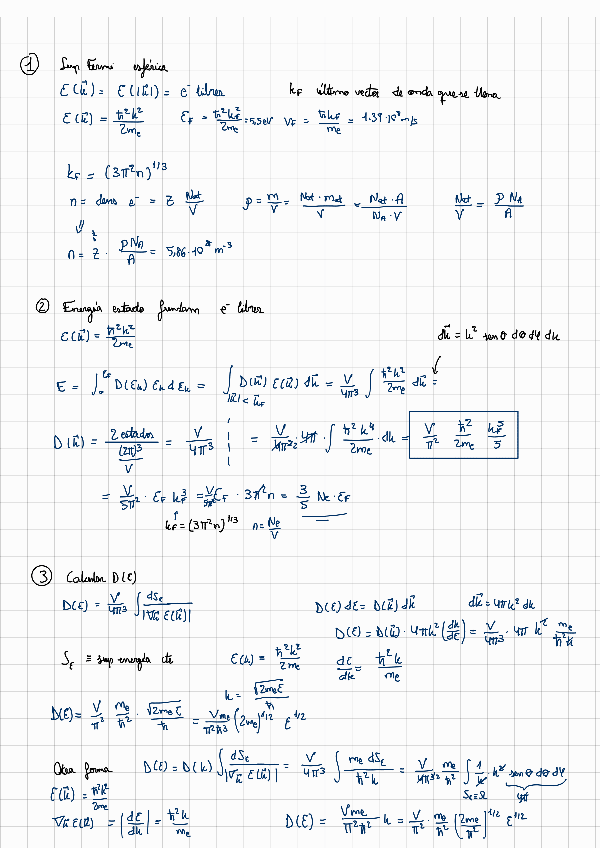 ① Sup Fermi esférica
ε(k⃗) = ε(|k⃗|) = e⁻ libres    k_F último vector de onda que se llena
ε(k⃗) = ħ²k²/2mₑ    ε_F = ħ²k_F²/2mₑ = 5,5 eV    v_F = ħk_F/mₑ = 1.39·10⁶ m/s
k_F = (3π²n)^1/3
n = dens e⁻ = Z Nat/V    ρ = m/V = Nat·mat/V = Nat·A/N_A·V    Nat/V = ρ N_A/A
⇓
n = Z · ρN_A/A = 5,86·10²⁸ m⁻³
② Energía estado fundam e⁻ libres
ε(k⃗) = ħ²k²/2mₑ    dk⃗ = k² senθ dθ dφ dk
E = ∫₀^ε_F D(εₖ) εₖ dεₖ = ∫_|k⃗|<k_F D(k⃗) ε(k⃗) dk⃗ = V/4π³ ∫ ħ²k²/2mₑ dk⃗ =
D(k⃗) = 2 estados/((2π)³/V) = V/4π³ ¦ = V/4π³ · 4π · ∫ ħ²k⁴/2mₑ · dk = V/π² ħ²/2mₑ k_F⁵/5
= V/5π² · ε_F k_F³ = V/5π² ε_F · 3π²n = 3/5 Nₑ · ε_F
k_F = (3π²n)^1/3    n = Nₑ/V
③ Calcular D(ε)
D(ε) = V/4π³ ∫ dS_ε/|∇k⃗ ε(k⃗)|    D(ε) dε = D(k⃗) dk⃗    dk⃗ = 4πk² dk
D(ε) = D(k⃗) · 4πk² (dk/dε) = V/4π³ · 4π k² mₑ/ħ²k
S_ε ≡ sup energía cte    ε(k) = ħ²k²/2mₑ    dε/dk = ħ²k/mₑ
k = √2mₑε/ħ
D(ε) = V/π² mₑ/ħ² · √2mₑε/ħ = Vmₑ/π²ħ³ (2mₑ)^1/2 ε^1/2
Otra forma    D(ε) = D(k) ∫ dS_ε/|∇k⃗ ε(k⃗)| = V/4π³ ∫ mₑ dS_ε/ħ²k = V/4π³ mₑ/ħ² ∫ 1/k · k² senθ dθ dφ
ε(k⃗) = ħ²k²/2mₑ    4π
∇k⃗ ε(k⃗) = |dε/dk| = ħ²k/mₑ    D(ε) = Vmₑ/π²ħ² k = V/π² · mₑ/ħ² [2mₑ/ħ²]^1/2 ε^1/2